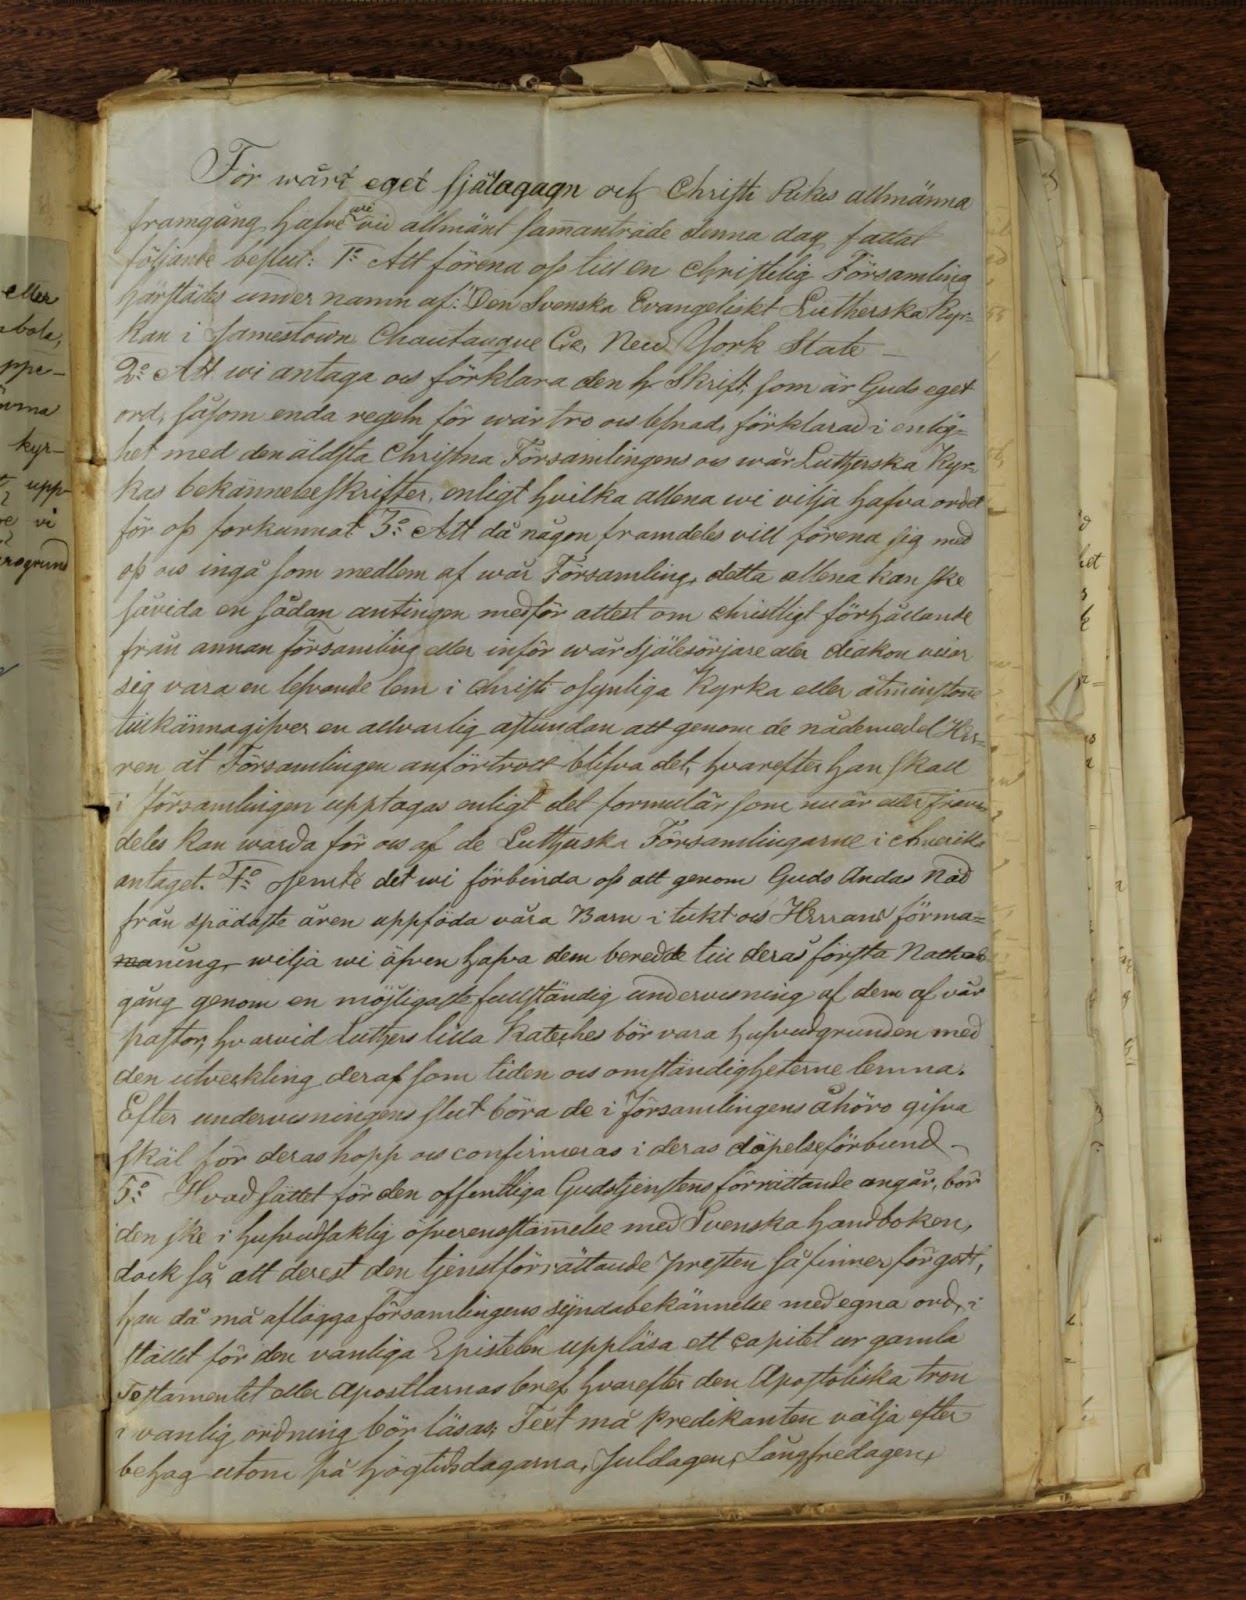 eller
bola,
ppe-
mma
kyr-
upp-
vi
rsgrund
För wårt eget själagagn och Christi Rikes allmänna
framgång hafve wi vid allmänt samanträde denna dag fattat
följande beslut: 1o Att förena oss till en christelig Församling
härstädes under namn af: "Den Svenska Evangeliskt Lutherska Kyr=
kan i Jamestown Chautauque Co, New York State –
2o Att wi antaga och förklara den h. Skrift, som är Guds eget
ord, såsom enda regeln för wår tro och lefnad, förklarad i enlig=
het med den äldsta Christna Församlingens och wår Lutherska Kyr=
kas bekännelseskrifter, enligt hvilka allena wi vilja hafva ordet
för oss forkunnat 3o Att då någon framdeles vill förena sig med
oss och ingå som medlem af wår Församling, detta allena kan ske
såvida en sådan antingen medför attest om christligt förhållande
från annan församling eller inför wår själesörjare eller diakon viser
sig vara en lefvande lem i Christi osynliga Kyrka eller åtminstone
tillkännagifver en allvarlig åstundan att genom de nådemedel Her=
ren åt Församlingen anförtrott blifva det, hvarefter han skall
i församlingen upptagas enligt det formulär som nu är eller fram
deles kan warda för oss af de Lutherska Församlingarne i Amerika
antaget. 4o Jemte det wi förbinda oss att genom Guds Andas Nåd
från spädaste åren uppföda våra Barn i tukt och Herrans förma=
ning, wilja wi äfven hafva dem beredde till deras första Nattvards
gång genom en möjligaste fullständig undervisning af dem af vår
pastor, hvarvid Luthers lilla Kateches bör vara hufvudgrunden med
den utveckling deraf som tiden och omständigheterne lemna.
Efter undervisningens slut böra de i församlingens åhöro gifva
skäl för deras hopp och confirmeras i deras döpelseförbund –
5o Hvad sättet för den offentliga Gudstjenstens förrättande angår, bör
den ske i hufvudsaklig öfverensstämmelse med Svenska handboken,
dock så, att derest den tjenstförrättande Presten så finner för gott,
han då må aflägga församlingens syndabekännelse med egna ord, i
stället för den vanliga Epistelen uppläsa ett capitel ur gamla
Testamentet eller Apostlarnas bref, hvarefter den Apostoliska tron
i vanlig ordning bör läsas; Text må predikanten välja efter
behag utom på högtidsdagarna, Juldagen, Långfredagen,